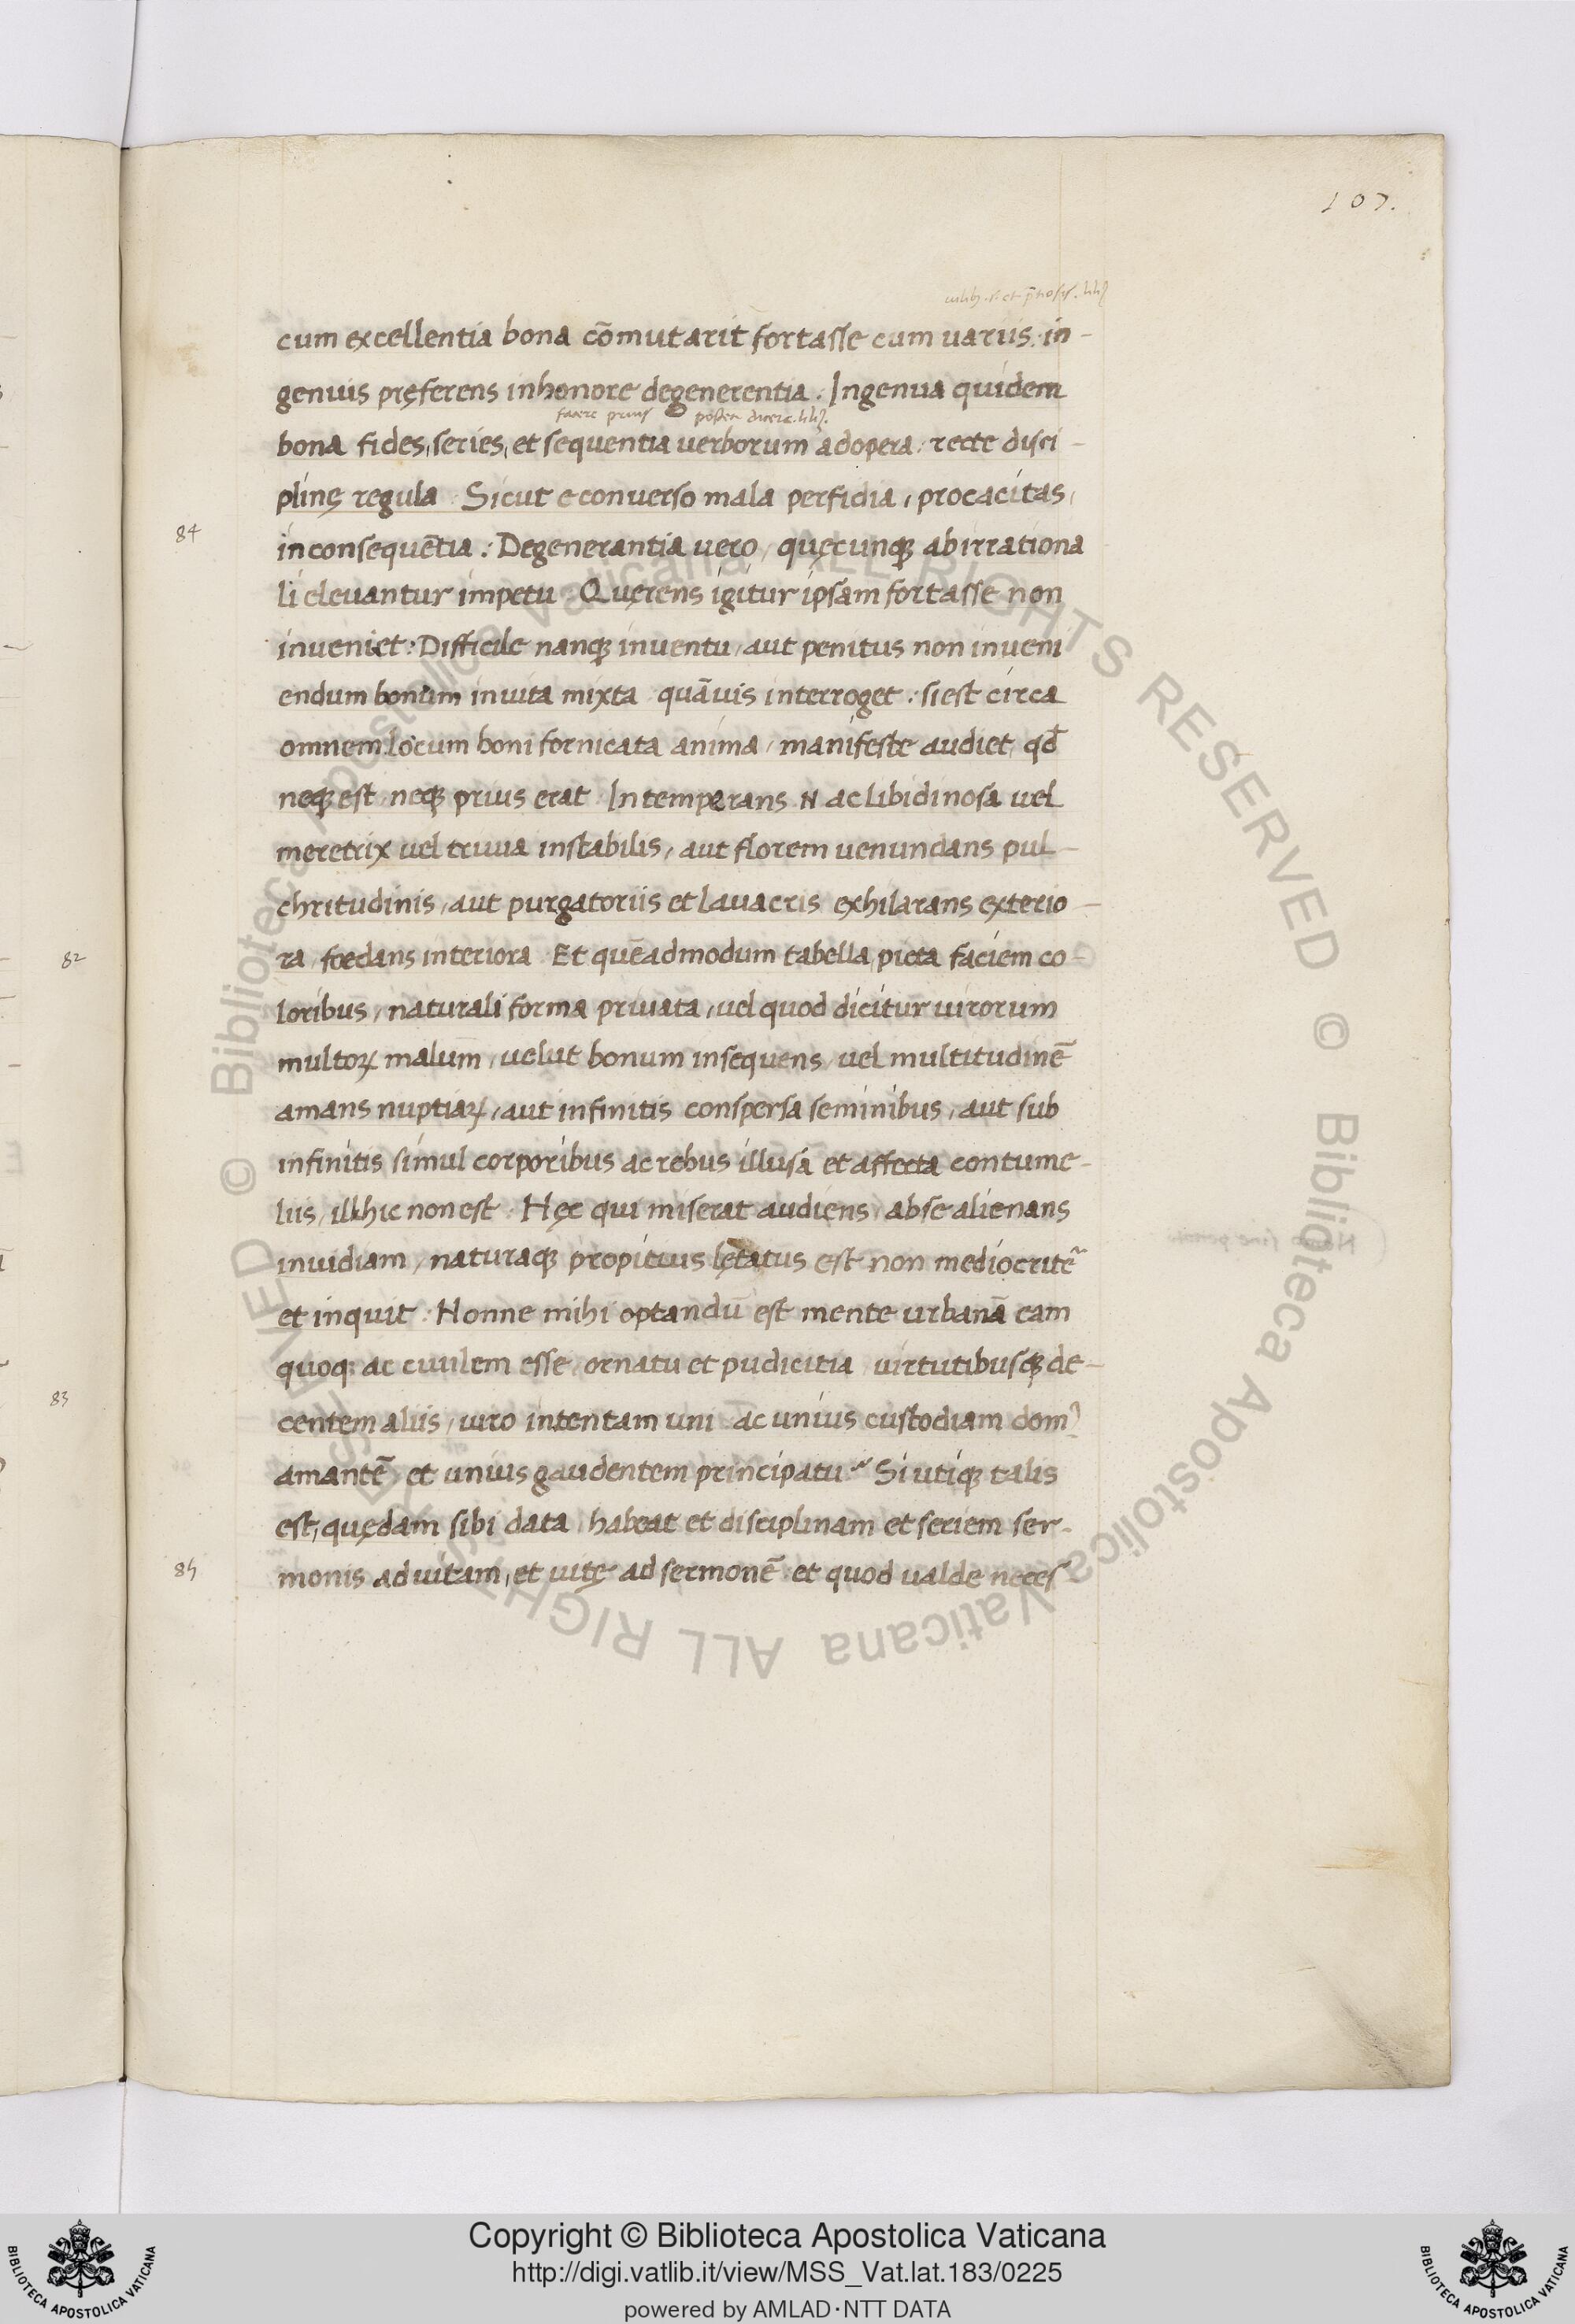 107.
cum excellentia bona cōmutarit fortasse cum uariis. in-
genuis pręferens inhonore degenerentia. Ingenua quidem
facere prius postea dicere.
bona fides, series, et sequentia uerborum adopera. recte disci-
plinę regula. Sicut econuerso mala perfidia, procacitas,
84
inconsequētia: Degenerantia uero, quęcunqꝫ abirrationa
li eleuantur impetu. Quęrens igitur ipsam fortasse non
inueniet: Difficile nanqꝫ inuentu, aut penitus non inueni
endum bonum inuita mixta quāuis interroget. siest circa
omnem locum boni fornicata anima, manifeste audiet, qđ
neqꝫ est, neqꝫ prius erat. Intemperans N aclibidinosa uel
meretrix uel triuia instabilis, aut florem uenundans pul-
chritudinis, aut purgatoriis et lauacris exhilarans exterio-
82
ra, foedans interiora. Et quēadmodum tabella picta faciem co-
loribus, naturali forma priuata, uel quod dicitur uirorum
multoꝝ malum, uelut bonum insequens, uel multitudinē
amans nuptiaꝝ, aut infinitis conspersa seminibus, aut sub
infinitis simul corporibus ac rebus illusā et affecta contume-
liis, illhic non est. Hęc qui miserat audiens, abse alienans
inuidiam, naturaqꝫ propitius lętatus est non mediocritẽ
et inquit. Nonne mihi optandū est mente urbanā eam
quoqꝫ ac ciuilem esse, ornatu et pudicitia uirtutibusqꝫ de-
83
centem aliis, uiro intentam uni ac unius custodiam dom⁹
amantē, et unius gaudentem principatu. Si utiqꝫ talis
est, quędam sibi data, habeat et disciplinam et seriem ser-
85
monis aduitam, et uitę ad sermonē. et quod ualde neces
Copyright © Biblioteca Apostolica Vaticana
http://digi.vatlib.it/view/MSS_Vat.lat.183/0225
powered by AMLAD·NTT DATA
BIBLIOTECA APOSTOLICA VATICANA
BIBLIOTECA APOSTOLICA VATICANA
© Biblioteca Apostolica Vaticana ALL RIGHTS RESERVED © Biblioteca Apostolica Vaticana ALL RIGHTS RESERVED